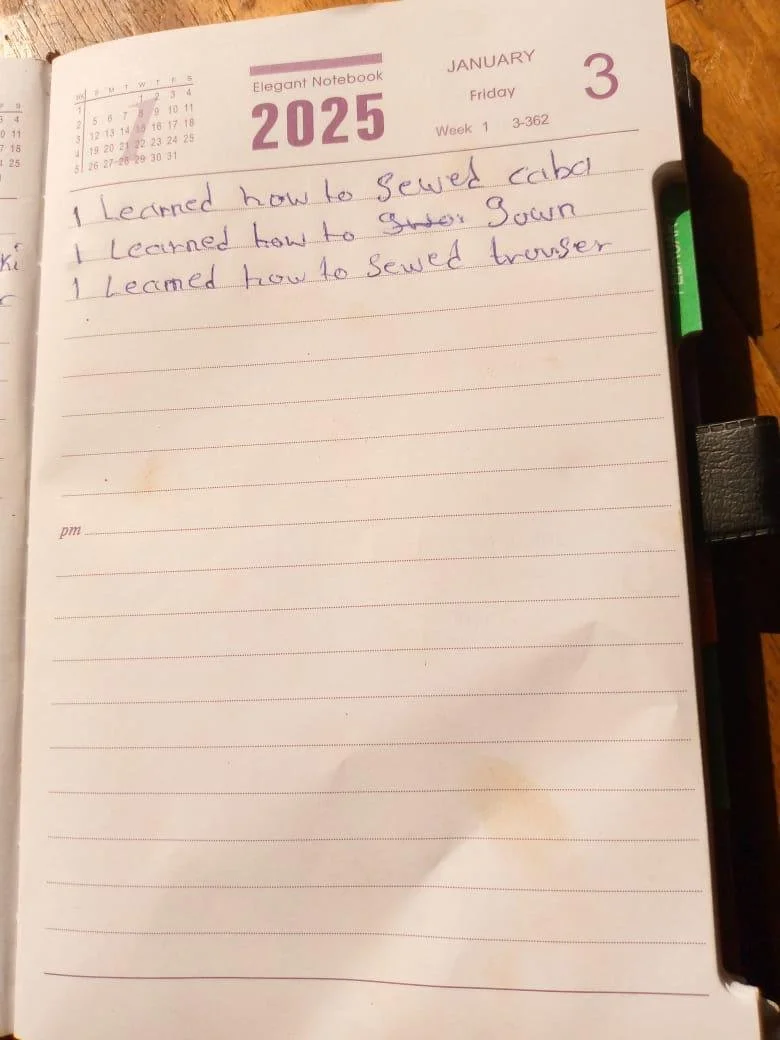 JANUARY
Elegant Notebook
Friday
3
2025
Week 1 3-362
WK S M T W T F S
1 1 2 3 4
2 5 6 7 8 9 10 11
3 12 13 14 15 16 17 18
4 19 20 21 22 23 24 25
5 26 27 28 29 30 31
I Learned how to Sewed caba
I Learned how to gown
I Learned how to Sewed trouser
pm